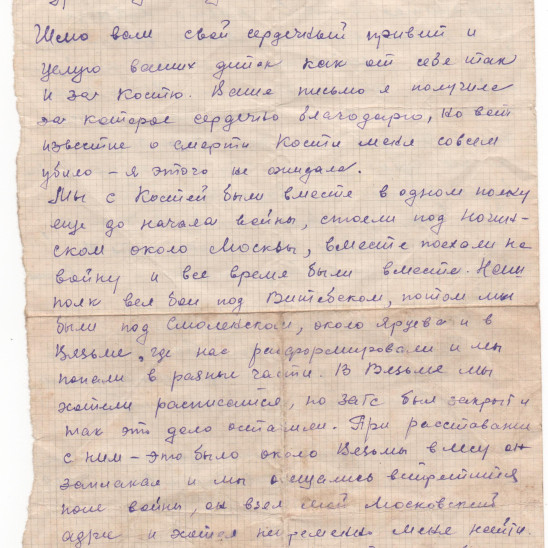 Шлю вам свой сердечный привет и
целую ваших деток как от себя так
и за Костю. Ваше письмо я получила
за которое сердечно благодарю, но вот
известие о смерти Кости меня совсем
убило – я этого не ожидала.
Мы с Костей были вместе в одном полку
еще до начала войны, стояли под Ногин-
ском около Москвы, вместе поехали на
войну и все время были вместе. Наш
полк вел бои под Витебском, потом мы
были под Смоленском, около Ярцева и в
Вязьме, где нас расформировали и мы
попали в разные части. В Вязьме мы
хотели расписатся, но загс был закрыт и
так это дело оставили. При расставании
с ним – это было около Вязьмы в лесу он
заплакал и мы
после войны, он взял мой Московский
адрес и хотел непременно меня найти.